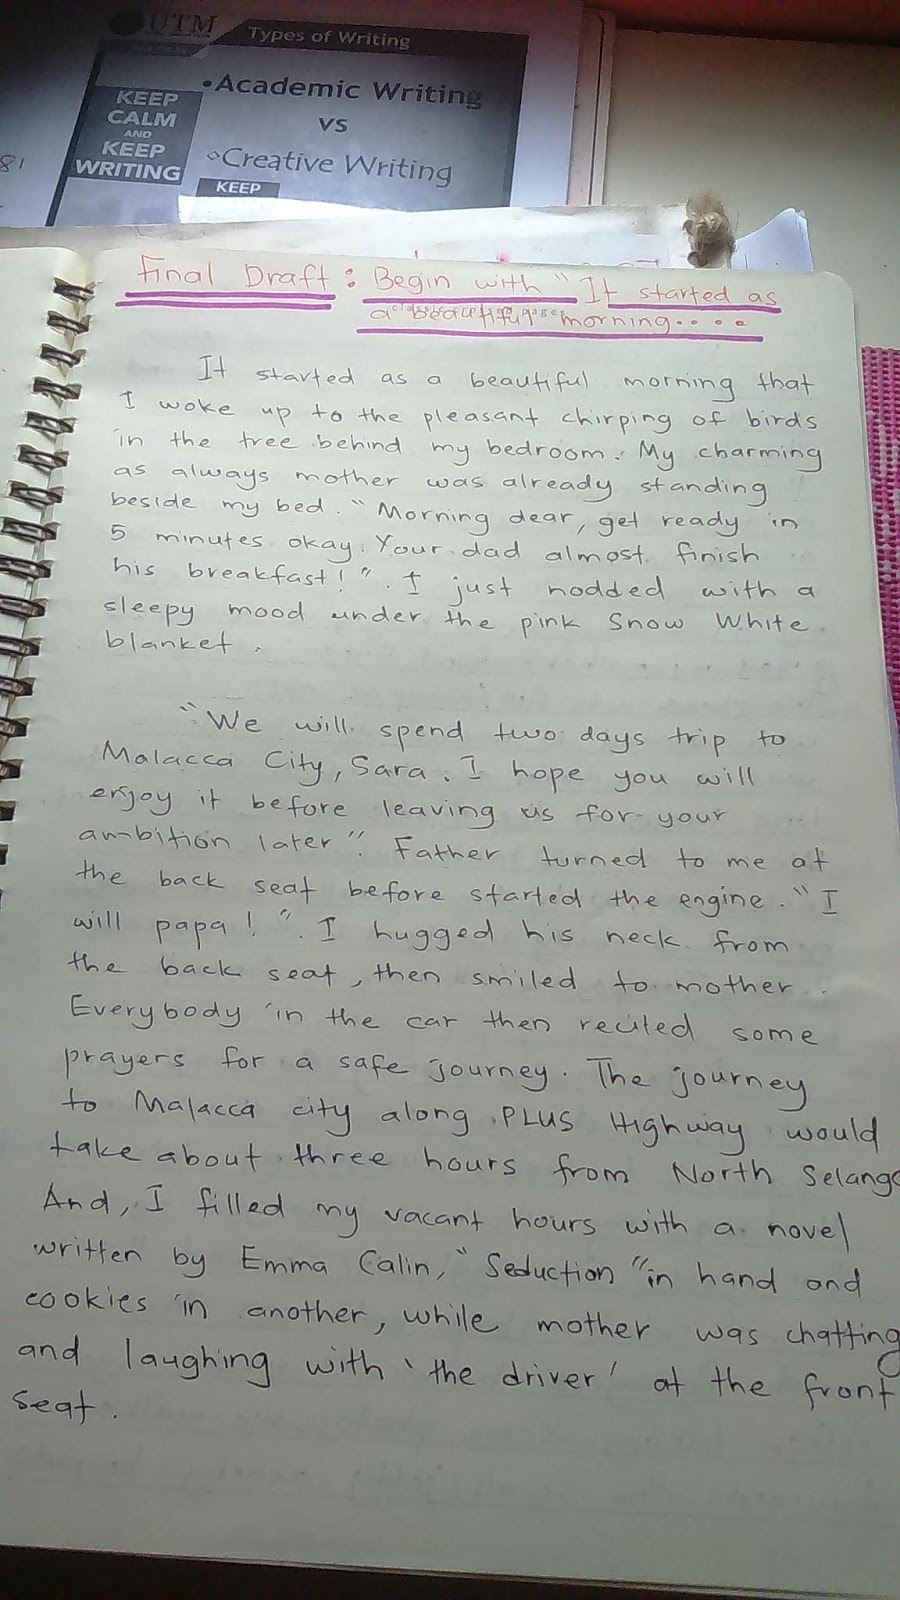 UTM
Types of Writing
•Academic Writing
vs
◦Creative Writing
KEEP
CALM
AND
KEEP
WRITING
KEEP
81
Final Draft : Begin with "It started as
a beautiful morning....
It started as a beautiful morning that
I woke up to the pleasant chirping of birds
in the tree behind my bedroom. My charming
as always mother was already standing
beside my bed. "Morning dear, get ready in
5 minutes okay. Your dad almost finish
his breakfast!". I just nodded with a
sleepy mood under the pink Snow White
blanket.
"We will spend two days trip to
Malacca City, Sara. I hope you will
enjoy it before leaving us for your
ambition later". Father turned to me at
the back seat before started the engine. "I
will papa!". I hugged his neck from
the back seat, then smiled to mother.
Everybody in the car then recited some
prayers for a safe journey. The journey
to Malacca city along PLUS Highway would
take about three hours from North Selang
And, I filled my vacant hours with a novel
written by Emma Calin, "Seduction" in hand and
cookies in another, while mother was chatting
and laughing with 'the driver' at the front
seat.